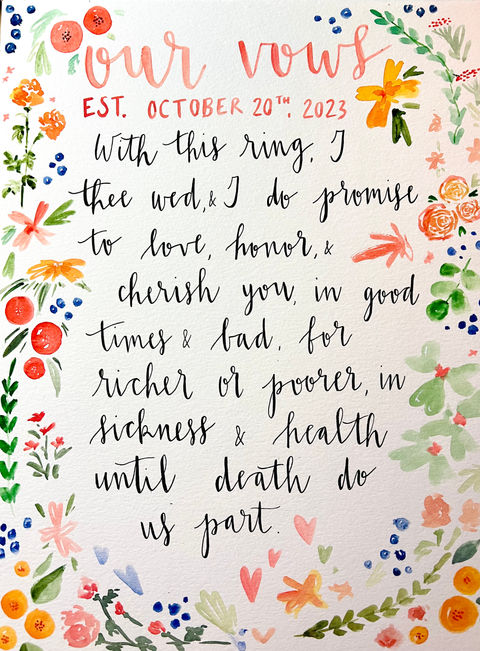 our vows
EST. OCTOBER 20TH. 2023
With this ring, I
thee wed, & I do promise
to love, honor, &
cherish you, in good
times & bad, for
richer or poorer, in
sickness & health
until death do
us part.